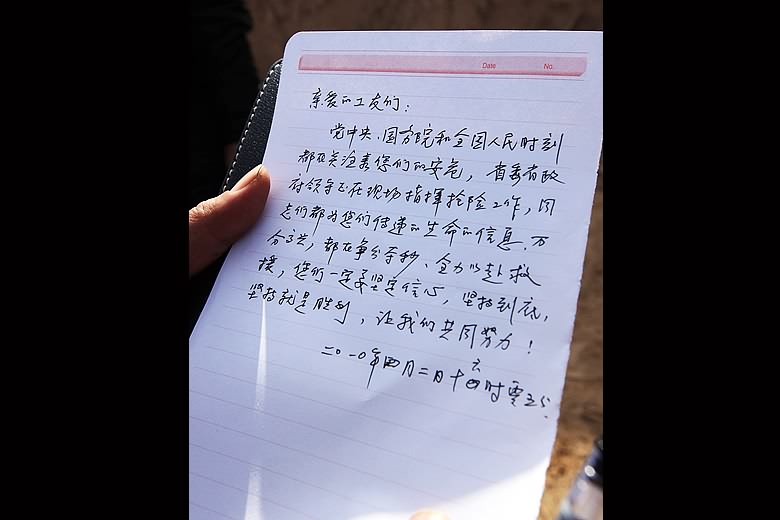 Date No.
亲爱的工友们：
党中央、国务院和全国人民时刻
都在关注着您们的安危，省委省政
府领导正在现场指挥抢险工作，同
志们都为您们传递的生命的信息、万
分高兴，都在争分夺秒、全力以赴救
援，您们一定要坚定信心，坚持到底，
坚持就是胜利，让我们共同努力！
二〇一〇年四月二日十六时零五分